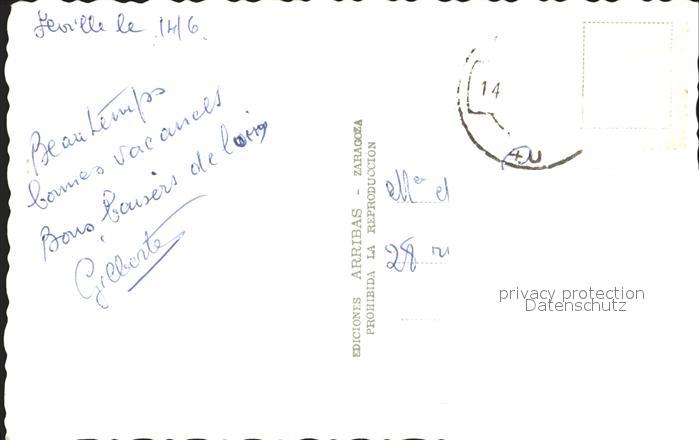 Séville le 14/6.
Beau temps
bonnes vacances
Bons baisers de loin
Gilberte
EDICIONES ARRIBAS - ZARAGOZA
PROHIBIDA LA REPRODUCCIÓN
14
28
privacy protection
Datenschutz